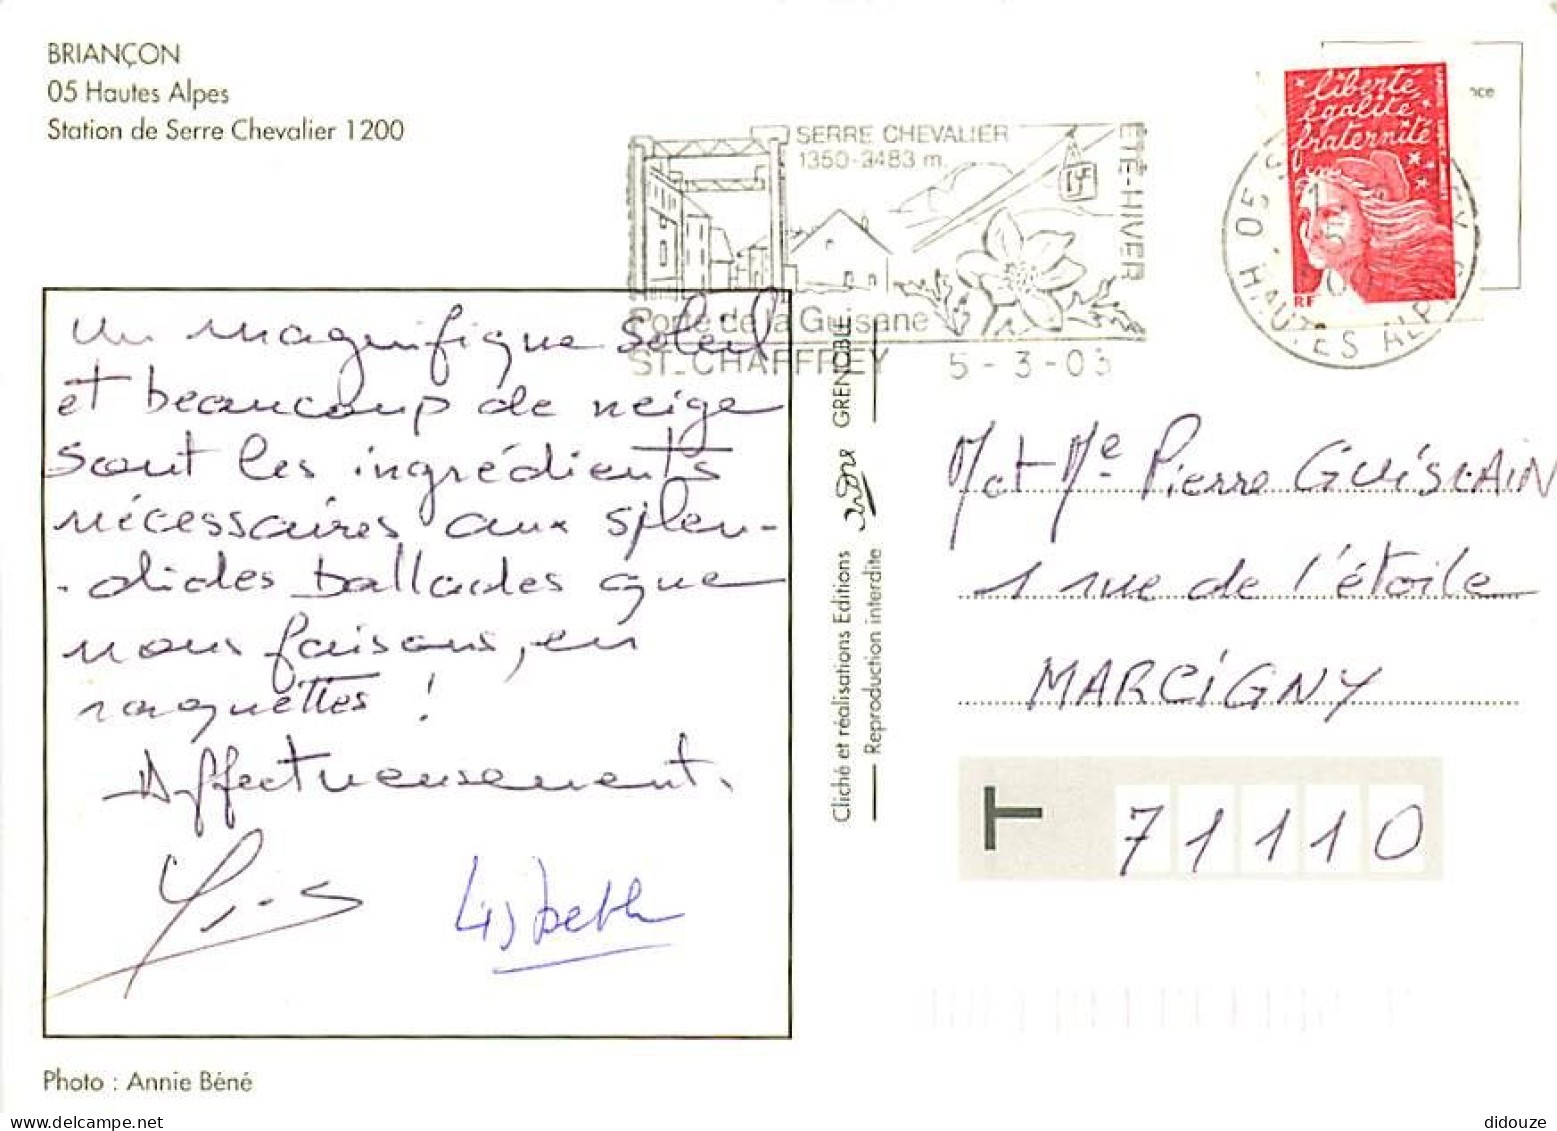 BRIANÇON
05 Hautes Alpes
Station de Serre Chevalier 1200
SERRE CHEVALIER
1350-3483 m.
ÉTÉ-HIVER
Porte de la Guisane
ST-CHAFFREY
5-3-03
liberté
égalité
fraternité
RF
05
HAUTES ALPES
un magnifique soleil
et beaucoup de neige
sont les ingrédients
nécessaires aux splen-
-dides ballades que
nous faisons, en
raquettes !
Affectueusement.
Lisbeth
Cliché et réalisations Editions André GRENOBLE
Reproduction interdite
M et Me Pierre GUISLAIN
1 rue de l'étoile
MARCIGNY
T 71110
Photo : Annie Béné
didouze